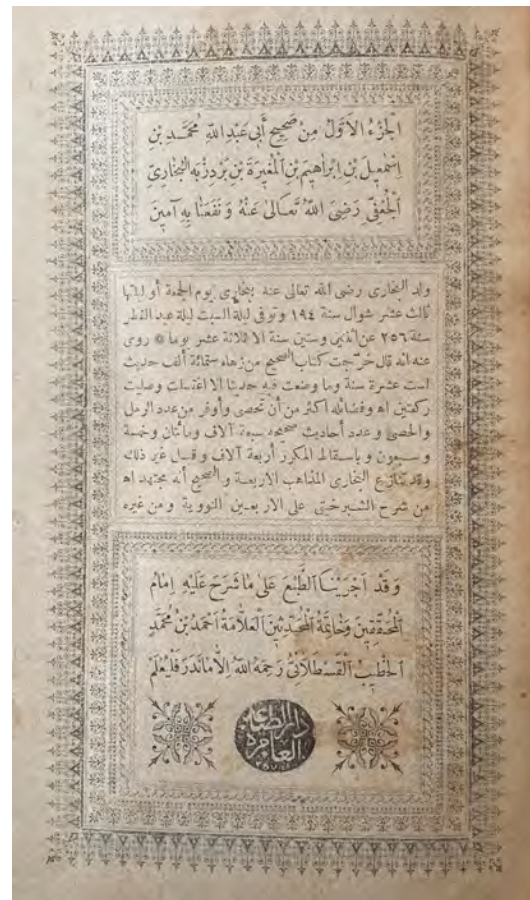 اَلْجُزْءُ الْاَوَّلُ مِنْ صَحِيحِ اَبِي عَبْدِ اللّٰهِ مُحَمَّدِ بْنِ
اِسْمٰعِيلَ بْنِ اِبْرَاهِيمَ بْنِ الْمُغِيرَةِ بْنِ بَرْدِزْبَهِ الْبُخَارِيِّ
اَلْجُعْفِيِّ رَضِيَ اللّٰهُ تَعَالٰى عَنْهُ وَنَفَعَنَا بِهِ آمِينَ
ولد البخارى رضى الله تعالى عنه ببخارى يوم الجمعة أو ليلتها
ثالث عشر شوال سنة ١٩٤ وتوفى ليلة السبت ليلة عيد الفطر
سنة ٢٥٦ عن اثنين وستين سنة الا ثلاثة عشر يوما ۞ روى
عنه انه قال خرّجت كتاب الصحيح من زهاء ستمائة ألف حديث
لست عشرة سنة وما وضعت فيه حديثا الا اغتسلت وصليت
ركعتين اه وفضائله اكثر من أن تحصى وأوفر من عدد الرمل
والحصى وعدد أحاديث صحيحه سبعة آلاف ومائتان وخمسة
وسبعون وباسقاط المكرر أربعة آلاف وقيل غير ذلك
وقد تنازع البخارى المذاهب الاربعة والصحيح أنه مجتهد اه
من شرح الشبرختى على الاربعين النووية ومن غيره
وَقَدْ اَجْرَيْنَا الطَّبْعَ عَلٰى مَا شَرَحَ عَلَيْهِ اِمَامُ
الْمُحَقِّقِينَ وَخَاتِمَةُ الْمُحَدِّثِينَ الْعَلَّامَةُ اَحْمَدُ بْنُ مُحَمَّدٍ
اَلْخَطِيبُ الْقَسْطَلَّانِيُّ رَحِمَهُ اللّٰهُ اِلَّا مَا نَدَرَ فَلْيُعْلَمْ
دار الطباعة
العامره